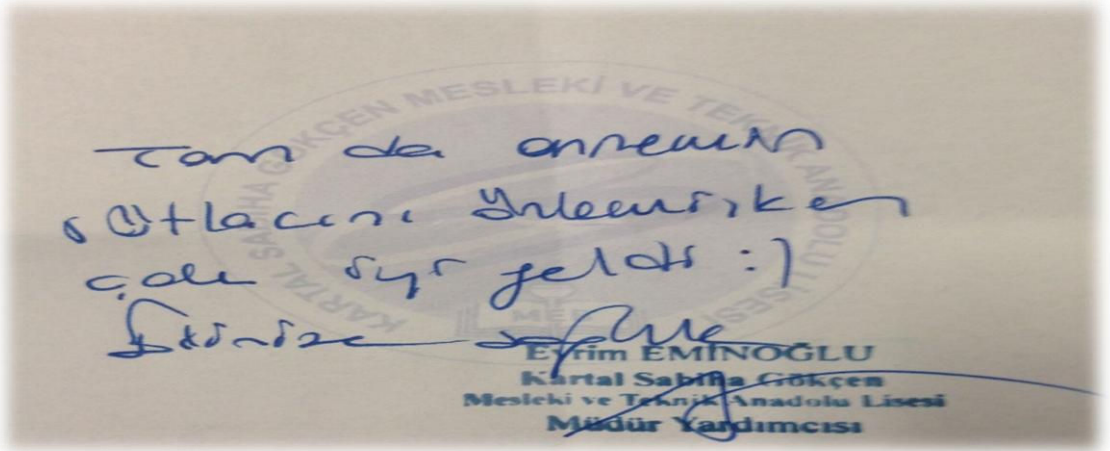 KARTAL SABİHA GÖKÇEN MESLEKİ VE TEKNİK ANADOLU LİSESİ
MEB
Tam da annemin
sütlacını özlemişken
çok iyi geldi :)
Elinize sağlık
Evrim EMİNOĞLU
Kartal Sabiha Gökçen
Mesleki ve Teknik Anadolu Lisesi
Müdür Yardımcısı